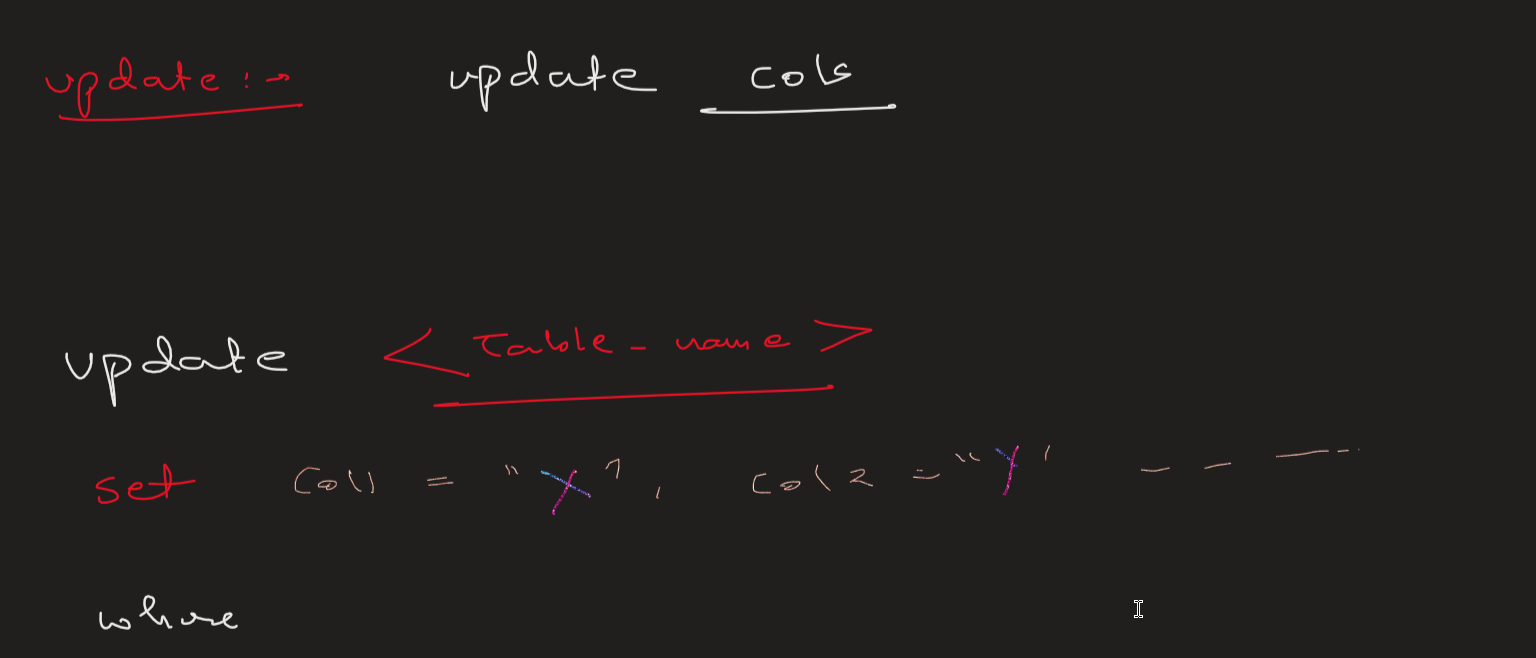 update :→ update cols
update < Table_name >
set Col1 = "X", Col2 = "Y' - - — -
where